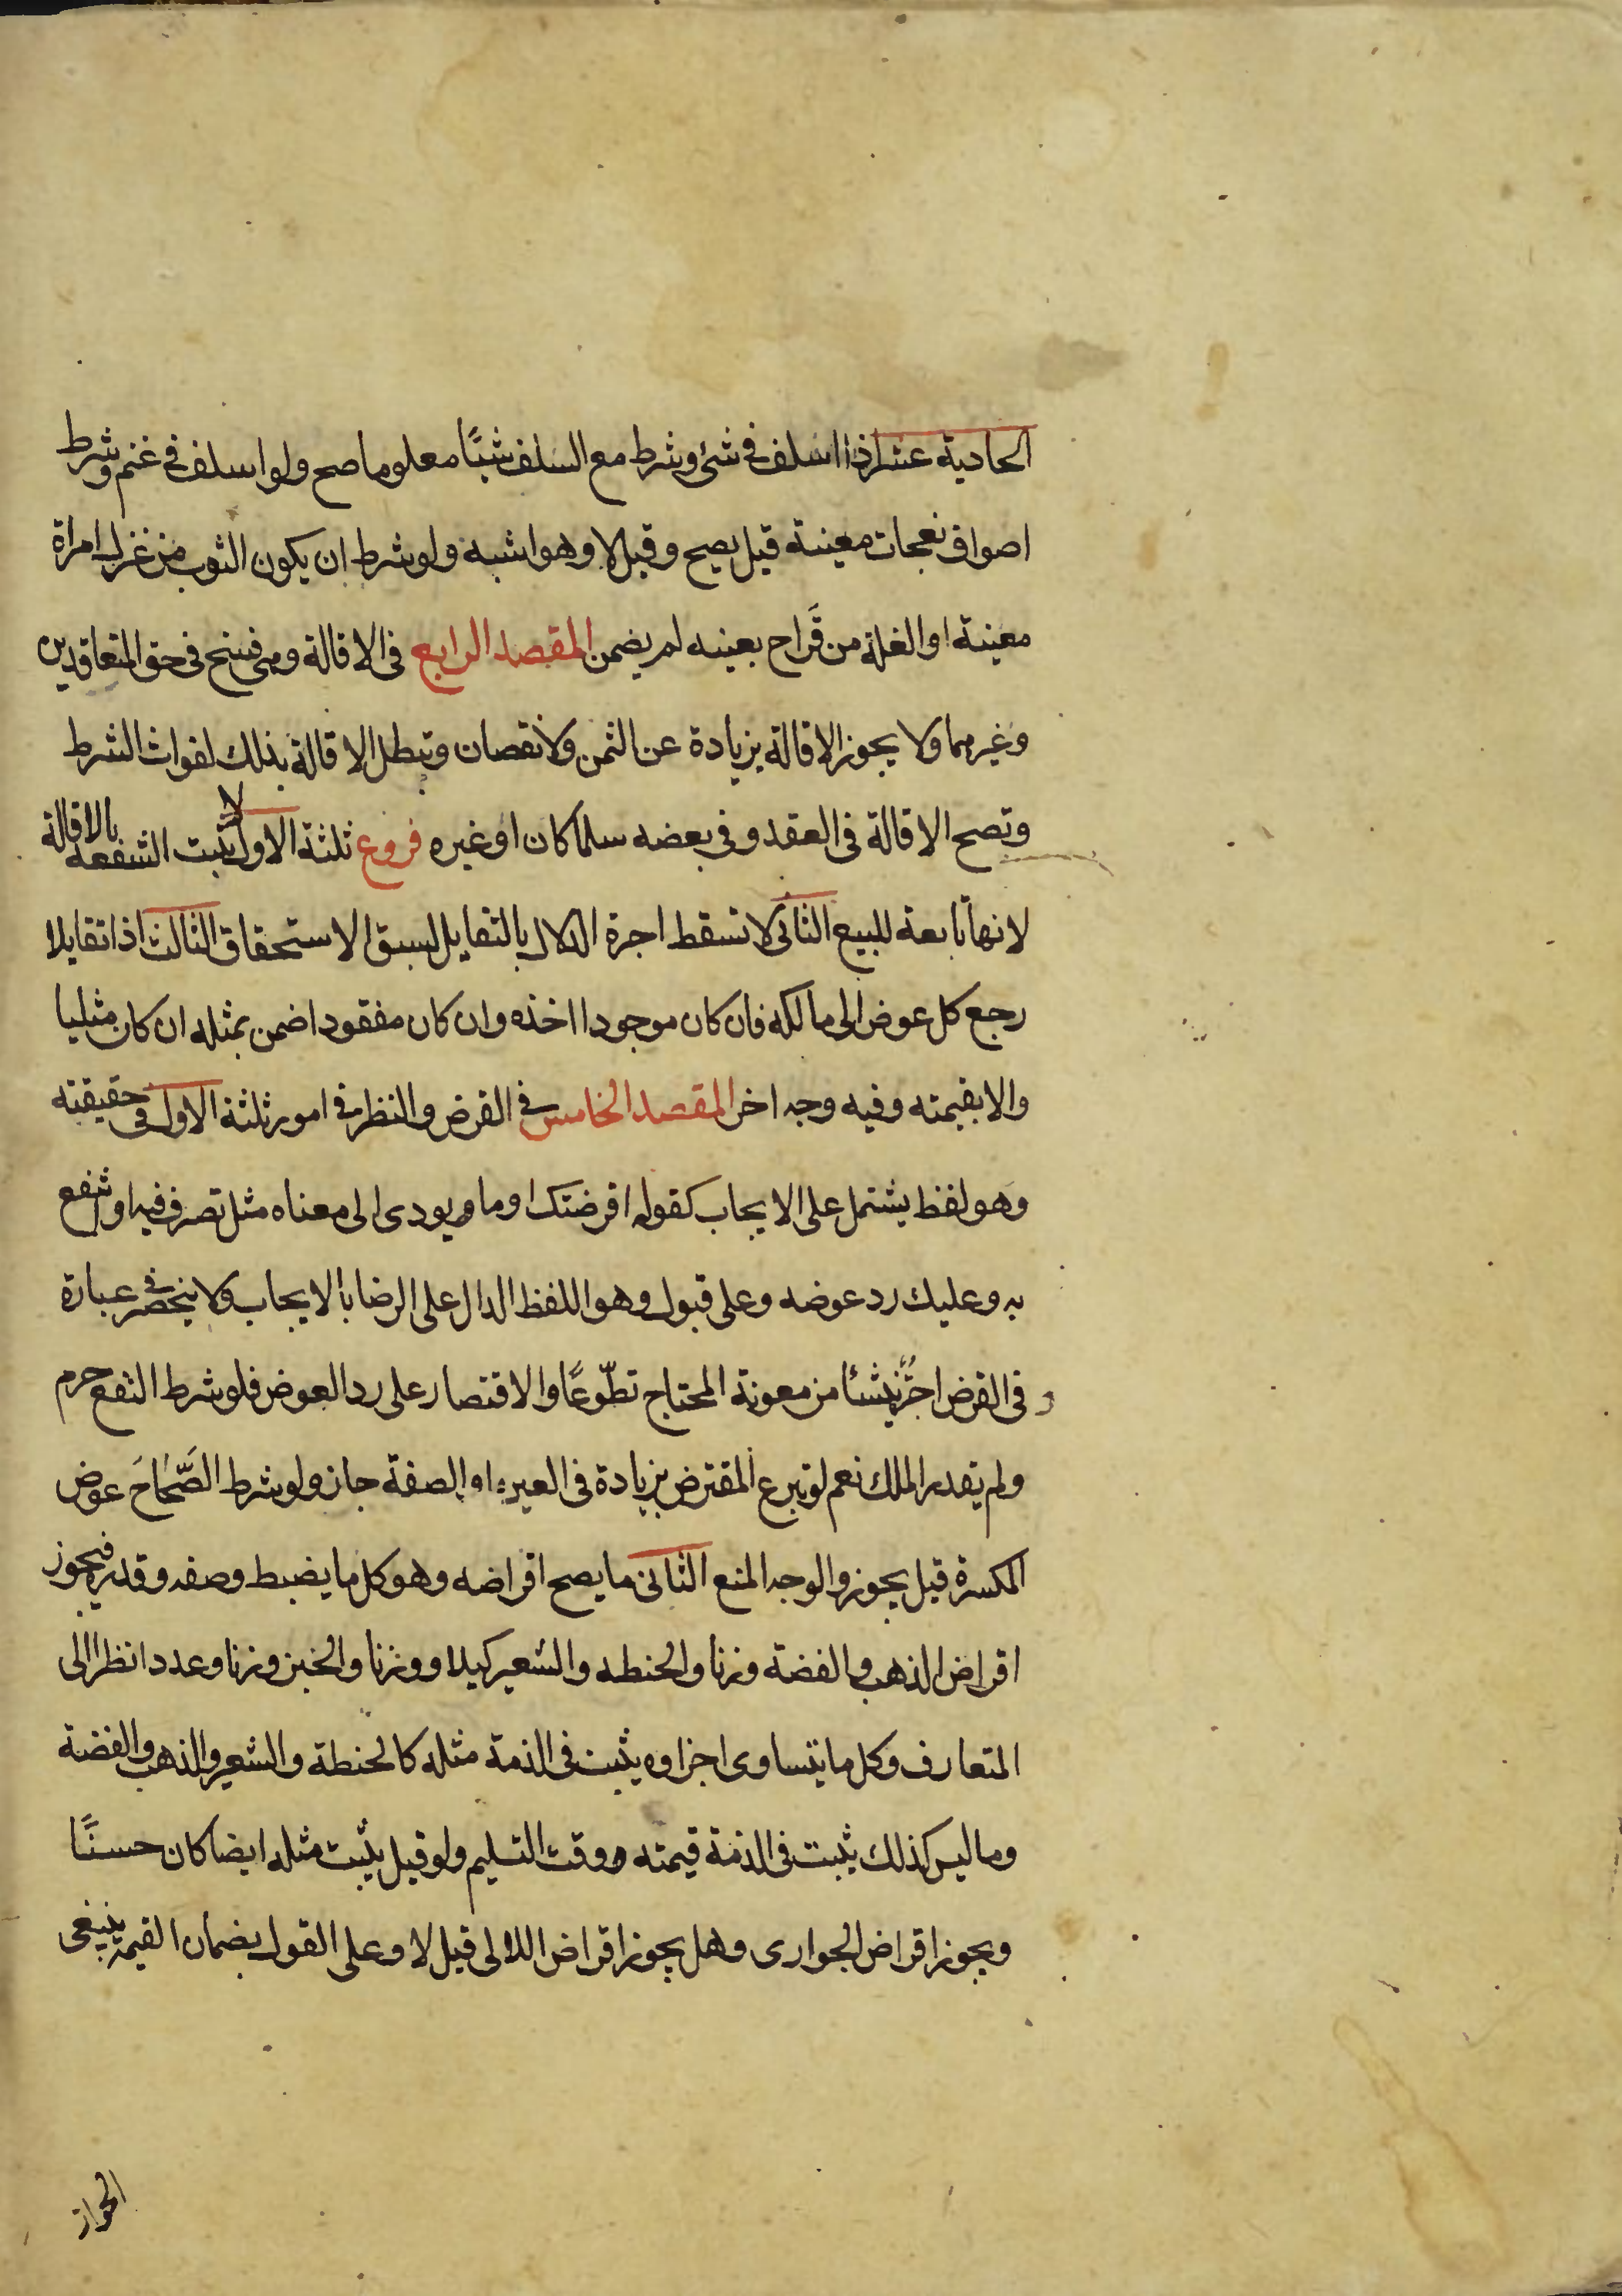 الحادية عشر اذا اسلف فى شئ وشرط مع السلف شيًا معلوما صح ولو اسلف فى غنم وشرط
اصواف نعجات معينة قيل يصح وقيل لا وهو اشبه ولو شرط ان يكون الثوب من غزل امراة
معينة او الغلة من قَراح بعينه لم يضمن المقصد الرابع فى الاقالة وهى فسخ فى حق المتعاقدين
وغيرهما ولا يجوز الاقالة بزيادة عن الثمن ولا نقصان وتبطل الاقالة بذلك لفوات الشرط
وتصح الاقالة فى العقد وفى بعضه سلما كان او غيره فروع ثلثة الاول لا يثبت الشفعه بالاقالة
لانها تابعة للبيع الثانى لا تسقط اجرة الدلال بالتقايل لسبق الاستحقاق الثالث اذا تقايلا
رجع كل عوض الى مالكه فان كان موجودا اخذه وان كان مفقودا ضمن بمثله ان كان مثليا
والا بقيمته وفيه وجه اخر المقصد الخامس فى القرض والنظر فى امور ثلثة الاول فى حقيقته
وهو لفظ يشتمل على الايجاب كقوله اقرضتك او ما يودى الى معناه مثل تصرف فيه او انتفع
به وعليك رد عوضه وعلى قبول وهو اللفظ الدال على الرضا بالايجاب ولا ينحصر فى عبارة
و فى القرض اجرٌ ينشئا من معونة المحتاج تطّوعًا والاقتصار على رد العوض فلو شرط النفع حرم
ولم يفد الملك نعم لو تبرع المقترض بزيادة فى العين او الصفة جاز ولو شرط الصَّحَاحَ عوض
المكسرة قيل يجوز والوجه المنع الثانى ما يصح اقراضه وهو كل ما يضبط وصفه وقدره فيجوز
اقراض الذهب والفضة وزنا والحنطه والشعير كيلا ووزنا والخبز وزنا وعددا نظرا الى
المتعارف وكل ما يتساوى اجزاوه يثبت فى الذمة مثله كالحنطة والشعير والذهب والفضة
وما ليس كذلك يثبت فى الذمة قيمته وقت التسليم ولو قيل يثبت مثله ايضا كان حسنًا
ويجوز اقراض الجوارى وهل يجوز اقراض اللالى قيل لا وعلى القول بضمان القيمة ينبغى
الجواز